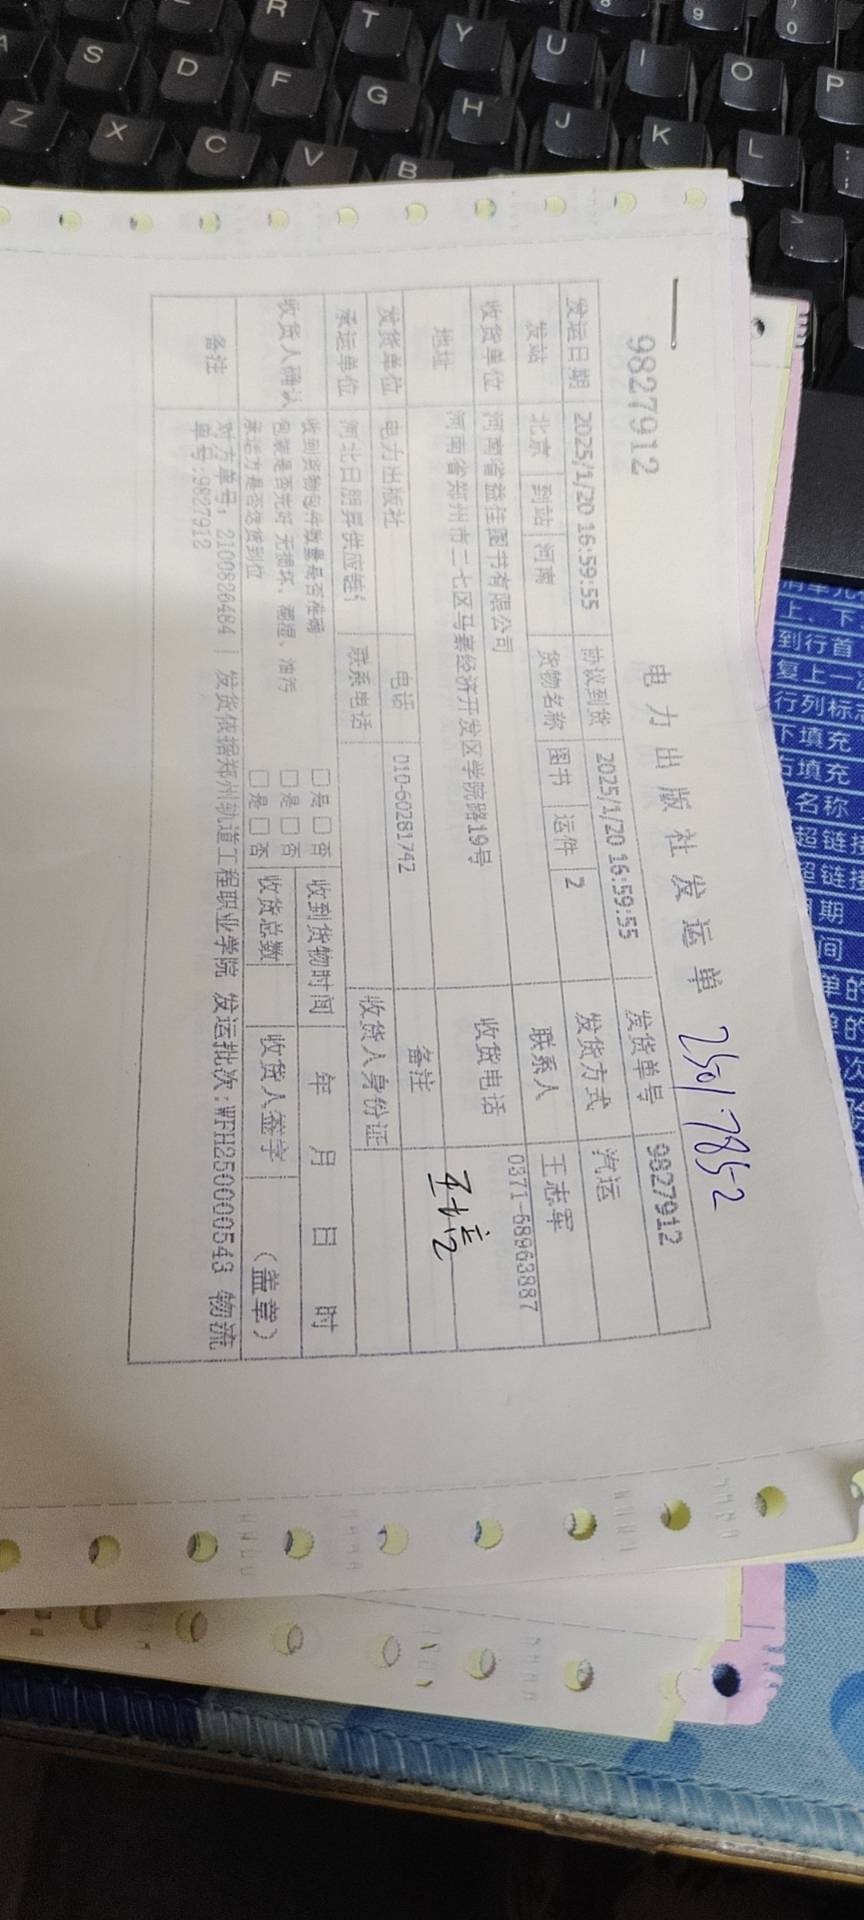 9827912
电力出版社发运单 25017852
发运日期 2025/1/20 16:59:55 协议到货 2025/1/20 16:59:55 发货单号 9827912
发站 北京 到站 河南 货物名称 图书 运件 2 发货方式 汽运
收货单位 河南省益佳图书有限公司 联系人 王志军
地址 河南省郑州市二七区马寨经济开发区学院路19号 收货电话 0371-68963887
发货单位 电力出版社 电话 010-60281742 备注
承运单位 河北日朋昇供应链 联系电话 收货人身份证
收货人确认 收到货物包件数量是否准确 □是□否 收到货物时间 年 月 日 时
包装是否完好 无损坏、潮湿、油污 □是□否 收货总数 收货人签字 (盖章)
承运方是否送货到位 □是□否
备注 对方单号：2100826484 | 发货依据郑州轨道工程职业学院 发运批次:WFH250000543 物流
单号:9827912
R
T
Y
U
I
O
P
S
D
F
G
H
J
K
L
Z
X
C
V
B
上、下
到行首
复上一
行列标
下填充
右填充
名称
超链接
超链接
期
间
单的
单的
次